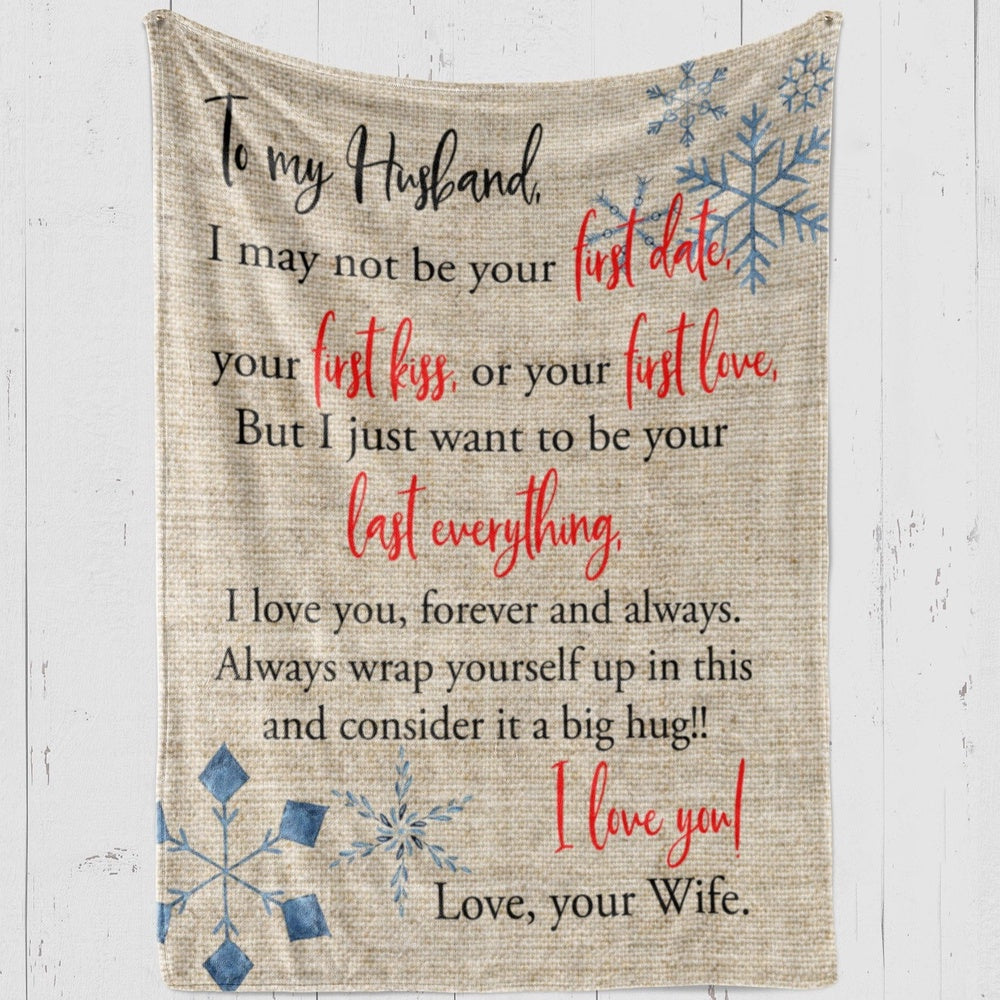 To my Husband,
I may not be your first date,
your first kiss, or your first love,
But I just want to be your
last everything,
I love you, forever and always.
Always wrap yourself up in this
and consider it a big hug!!
I love you!
Love, your Wife.